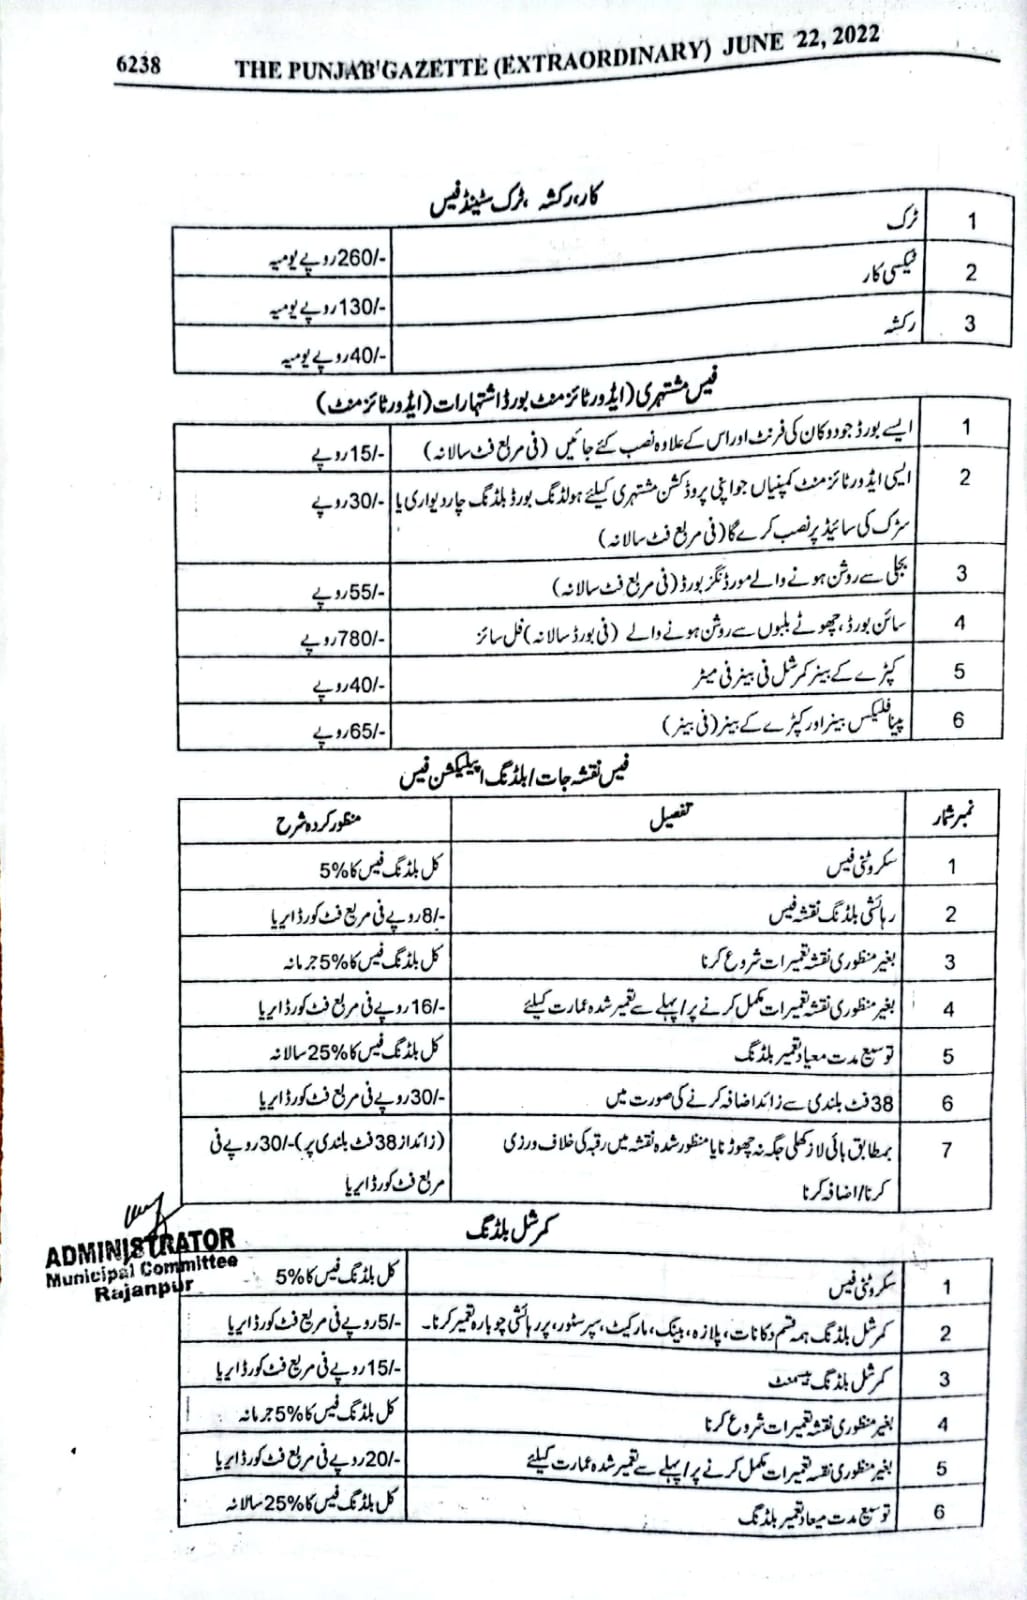 6238 THE PUNJAB GAZETTE (EXTRAORDINARY) JUNE 22, 2022
کار، رکشہ، ٹرک سٹینڈ فیس
1 ٹرک 260/- روپے یومیہ
2 ٹیکسی کار 130/- روپے یومیہ
3 رکشہ 40/- روپے یومیہ
فیس مشتہری (ایڈورٹائزمنٹ بورڈ اشتہارات (ایڈورٹائزمنٹ)
1 ایسے بورڈ جو دوکان کی فرنٹ اور اس کے علاوہ نصب کئے جائیں (فی مربع فٹ سالانہ) 15/- روپے
2 ایسی ایڈورٹائزمنٹ کمپنیاں جو اپنی پروڈکشن مشتہری کیلئے ہولڈنگ بورڈ بلڈنگ چاردیواری یا 30/- روپے
سڑک کی سائیڈ پر نصب کرے گا (فی مربع فٹ سالانہ)
3 بجلی سے روشن ہونے والے مورڈنگز بورڈ (فی مربع فٹ سالانہ) 55/- روپے
4 سائن بورڈ، چھوٹے بلبوں سے روشن ہونے والے (فی بورڈ سالانہ) فل سائز 780/- روپے
5 کپڑے کے بینر کمرشل فی بینر فی میٹر 40/- روپے
6 پینا فلیکس بینر اور کپڑے کے بینر (فی بینر) 65/- روپے
فیس نقشہ جات / بلڈنگ اپیلیکشن فیس
نمبر شمار تفصیل منظور کردہ شرح
1 سکروٹنی فیس کل بلڈنگ فیس کا 5%
2 رہائشی بلڈنگ نقشہ فیس 8/- روپے فی مربع فٹ کورڈ ایریا
3 بغیر منظوری نقشہ تعمیرات شروع کرنا کل بلڈنگ فیس کا 5% جرمانہ
4 بغیر منظوری نقشہ تعمیرات مکمل کرنے پر / پہلے سے تعمیر شدہ عمارت کیلئے 16/- روپے فی مربع فٹ کورڈ ایریا
5 توسیع مدت معیاد تعمیر بلڈنگ کل بلڈنگ فیس کا 25% سالانہ
6 38 فٹ بلندی سے زائد اضافہ کرنے کی صورت میں 30/- روپے فی مربع فٹ کورڈ ایریا
7 بمطابق بائی لاز کھلی جگہ نہ چھوڑنا یا منظور شدہ نقشہ میں رقبہ کی خلاف ورزی (زائد از 38 فٹ بلندی پر) 30/- روپے فی
کرنا / اضافہ کرنا مربع فٹ کورڈ ایریا
کمرشل بلڈنگ
ADMINISTRATOR
Municipal Committee
Rajanpur
1 سکروٹنی فیس کل بلڈنگ فیس کا 5%
2 کمرشل بلڈنگ ہمہ قسم دکانات، پلازہ، بینک، مارکیٹ، سپر سٹور، پر رہائشی چوبارہ تعمیر کرنا۔ 5/- روپے فی مربع فٹ کورڈ ایریا
3 کمرشل بلڈنگ بیسمنٹ 15/- روپے فی مربع فٹ کورڈ ایریا
4 بغیر منظوری نقشہ تعمیرات شروع کرنا کل بلڈنگ فیس کا 5% جرمانہ
5 بغیر منظوری نقشہ تعمیرات مکمل کرنے پر / پہلے سے تعمیر شدہ عمارت کیلئے 20/- روپے فی مربع فٹ کورڈ ایریا
6 توسیع مدت میعاد تعمیر بلڈنگ کل بلڈنگ فیس کا 25% سالانہ